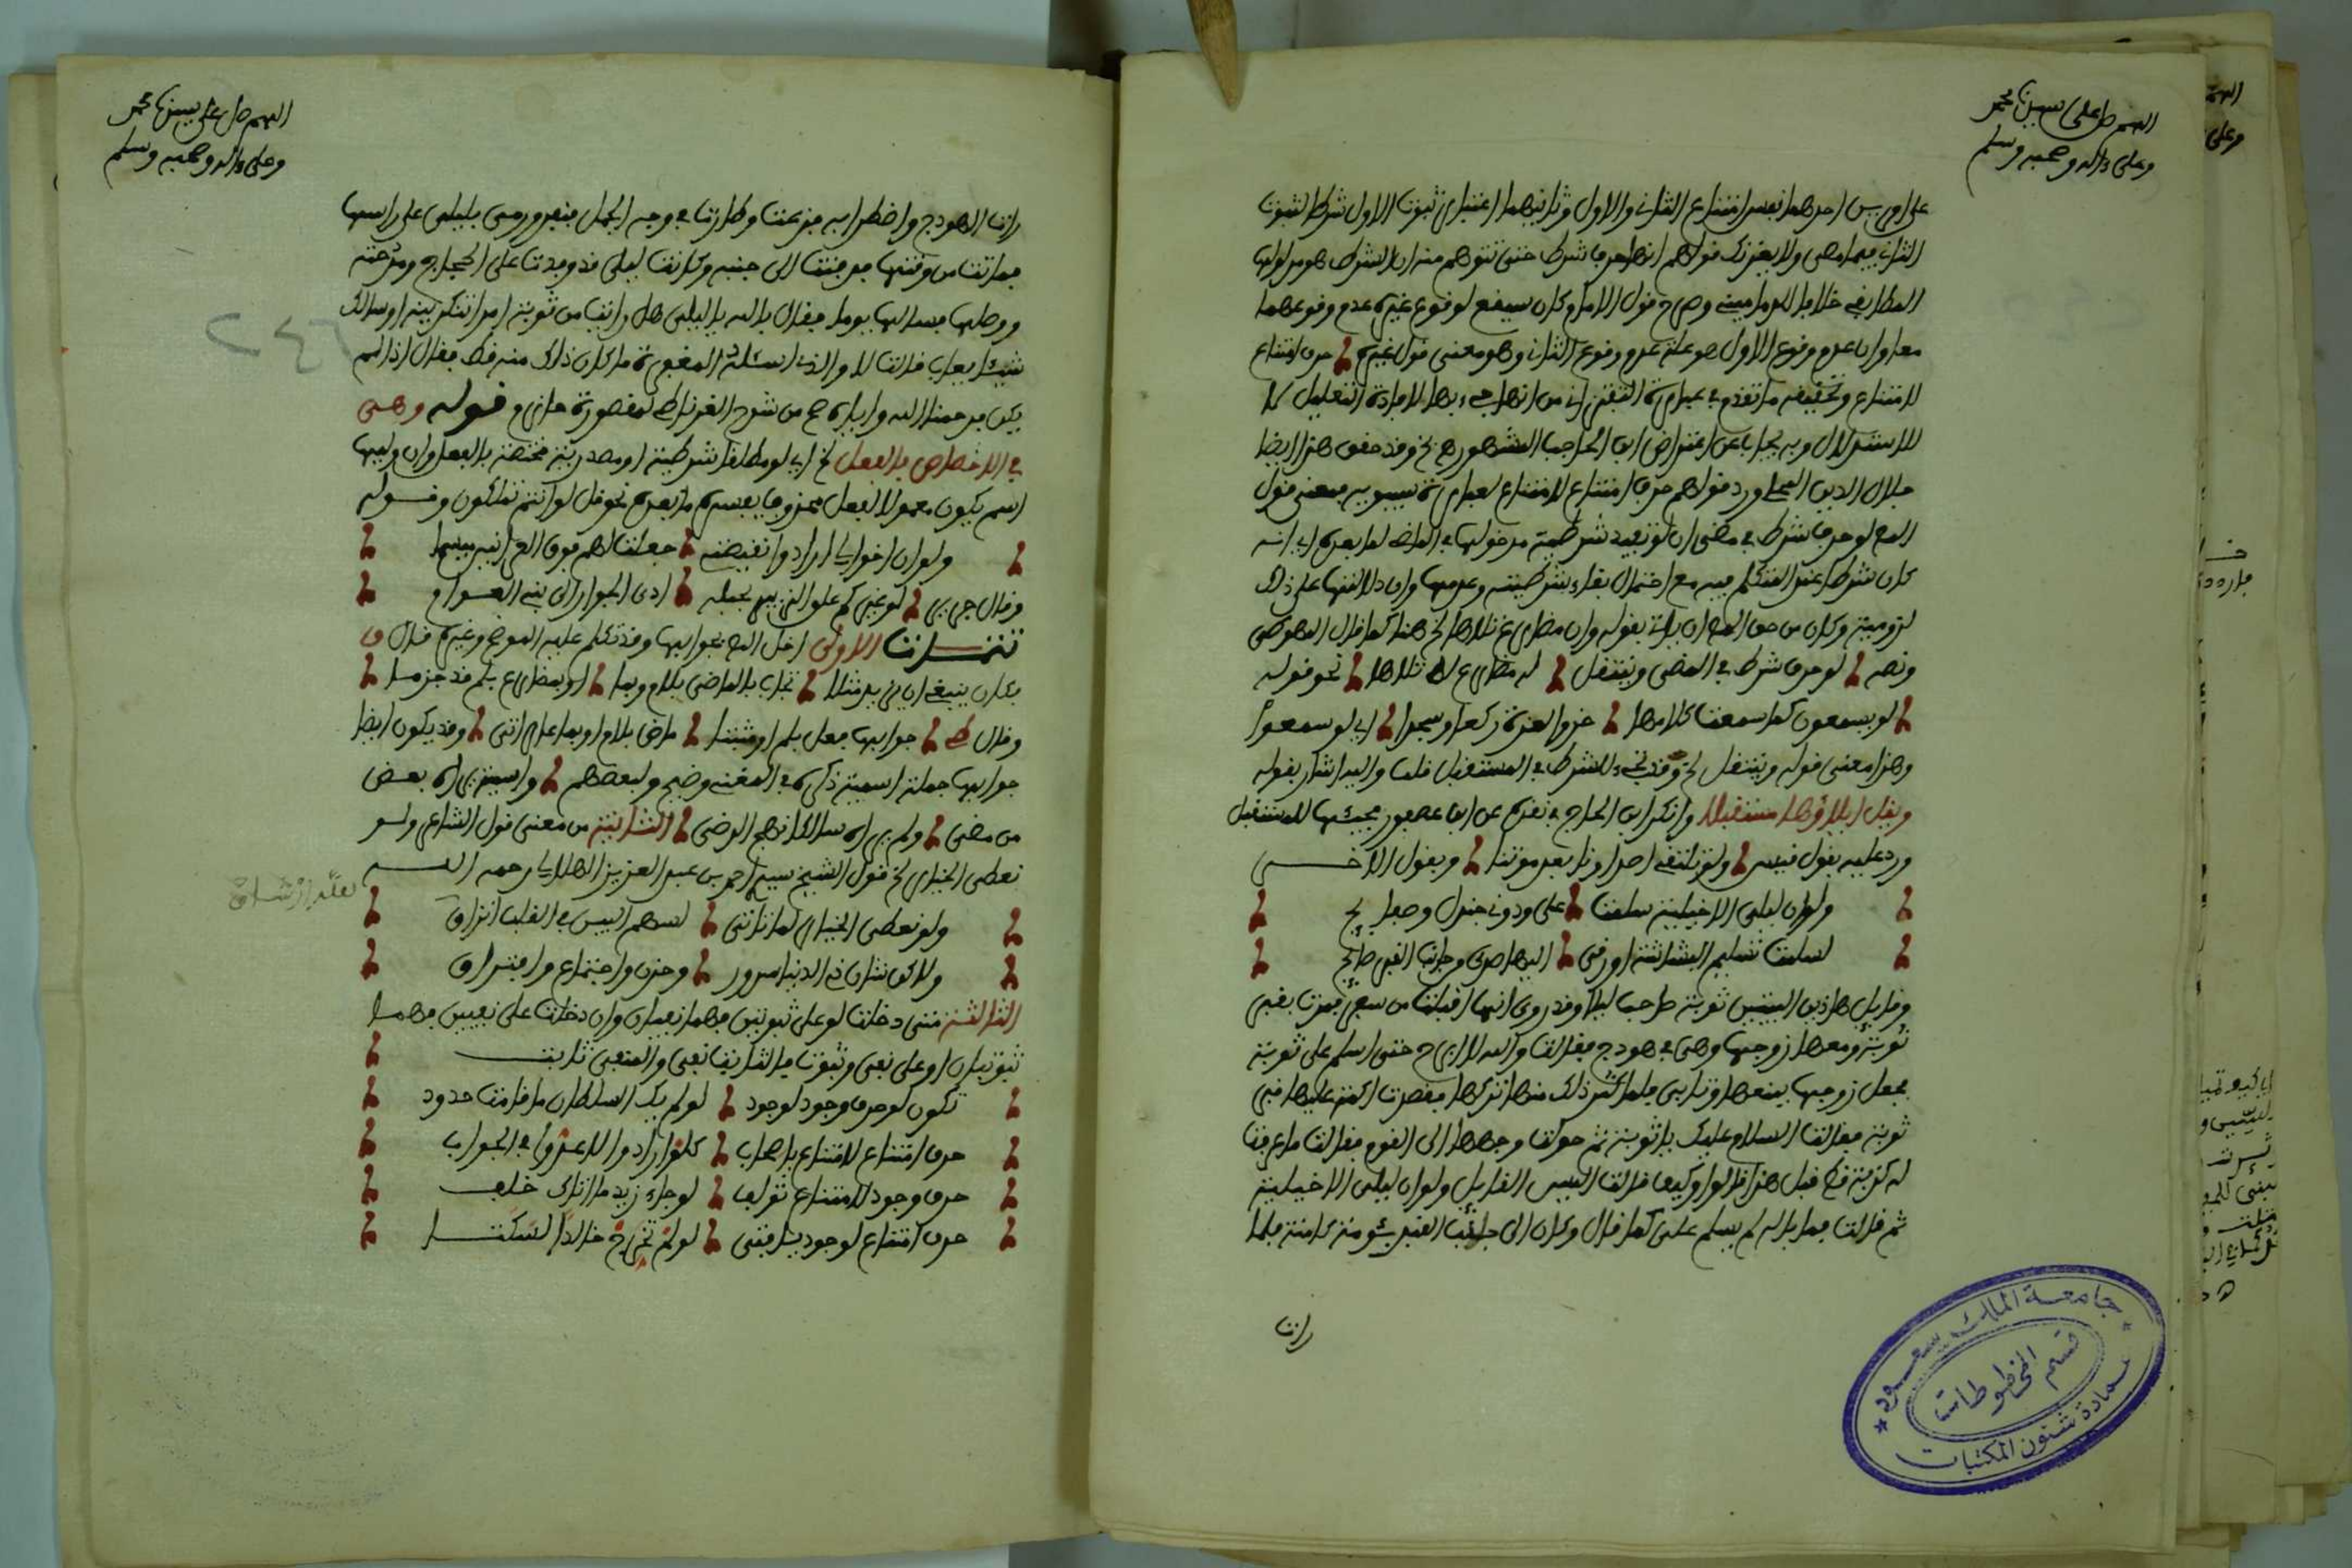 اللهم صل على سيدنا محمد
وعلى ءاله وصحبه وسلم
على امرين احدهما نفس امتناع الثاني والاول وثانيهما اعتبار ثبوت الاول شرطا لثبوت
الثاني فيما مضى ولا يغرنك قولهم انها حرف شرط حتى تتوهم منه ان الشرط هو مدلولها
المطابقي خلافا للدماميني وصح قول الامام وكان سيقع لوقوع غيره عدم وقوعهما
معا وان عدم وقوع الاول هو علة عدم وقوع الثاني وهو معنى قول غيره حرف امتناع
لامتناع وتحقيقه ما تقدم في عبارة التفتزاني من انها جيء بها لافادة التعليل لا
للاستدلال وبه يجاب عن اعتراض ابن الحاجب المشهور هـ نخ وقد حقق هذا ايضا
جلال الدين المحلي ورد قولهم حرف امتناع لامتناع لعبارة سيبويه فمعنى قول
المص لو حرف شرط في مضي ان لو تفيد شرطية مدخولها في الماضي لما بعده اي انه
كان شرطا عند المتكلم فيه مع احتمال بقاء شرطيته وعدمها وان دلالتها على ذلك
لزومية وكان من حق المص ان ياتي بقوله وان مضارع تلاها الخ هنا كما قال المهوضي
ونصه لو حرف شرط في المضي وينتقل له مضارع تلاها نحو قوله
لو يسمعون كما سمعت كلامها خروا لعزة ركعا وسجدا اي لو سمعوا
وهذا معنى قوله وينتقل الخ وقد تجيء للشرط في المستقبل قلت واليه اشار بقوله
ويقل ايلاؤها مستقبلا وانكر ابن الحاج في نقده على ابن عصفور مجيئها للمستقبل
ورد عليه بقول قيس ولو تلتقي اصداؤنا بعد موتنا وبقول الاخر
ولو ان ليلى الاخيلية سلمت علي ودوني جندل وصفايح
لسلمت تسليم البشاشة او زقى اليها صدى من جانب القبر صائح
وقايل هاذين البيتين توبة صاحب ليلى وقد روي انها اقبلت من سفر فمرت بقبر
توبة ومعها زوجها وهي في هودج فقالت والله لا ابرح حتى اسلم على توبة
فجعل زوجها يمنعها وتابى فلما كثر ذلك منها تركها فقصدت اكمة عليها قبر
توبة فقالت السلام عليك يا توبة ثم حولت وجهها الى القوم فقالت ما عرفت
له كذبة قط قبل هذا قالوا وكيف قالت اليس القايل ولو ان ليلى الاخيلية
ثم قالت فما باله لم يسلم علي كما قال وكان الى جانب القبر بومة كامنة فلما
رات
جامعة الملك سعود
قسم المخطوطات
عمادة شئون المكتبات
اللهم صل على سيدنا محمد
وعلى ءاله وصحبه وسلم
رات الهودج واضطرابه فزعت وطارت في وجه الجمل فنفر ورمى بليلى على راسها
فماتت من وقتها فدفنت الى جنبه وكانت ليلى قد وفدت على الحجاج ومدحته
ووصلها فسالها يوما فقال بالله يا ليلى هل رايت من توبة امرا تنكرينه او سالك
شيئا يعاب قالت لا والذي اسئله المغفرة ما كان ذلك منه قط فقال اذا لم
يكن فرحمنا الله واياه هـ من شرح الغرناطي لمقصورة حازم قوله وهي
في الاختصاص بالفعل الخ اي لو مطلقا شرطية او مصدرية مختصة بالفعل وان وليها
اسم يكون معمولا لفعل محذوف يفسره ما بعده نحو قل لو انتم تملكون وقوله
ولو ان اخوالي ارادوا نقيضه جعلت لهم فوق العرانين ميسما
وقال جرير لو غيركم علق الزبير بحبله ادى الجوار الى بني العوام
تنبيهات الاولى اخل المص بجوابها وقد تكلم عليه الموضح وغيره قال
فكان ينبغي ان يزيد مثلا تجاب بالماضي بلام وبما او بمضارع بلم قد جزما
وقال جوابها فعل بلم او مثبتا ماض بلام او بما عار اتى وقد يكون ايضا
جوابها جملة اسمية ذكره في المغني وضيح ولبعضهم واسمية يراه بعض
من مضى ولم يره سالكا نهج الرضى الثانية من معنى قول الشاعر ولو
نعطى الخيار الخ قول الشيخ سيدي احمد بن عبد العزيز الهلالي رحمه الله
ولو نعطى الخيار لما ناتني لسهم البين في القلب انزاق
ولاكن شان ذي الدنيا سرور وحزن واجتماع وافتراق
الثالثة متى دخلت لو على ثبوتين فهما نفيان وان دخلت على نفيين فهما
ثبوتيان او على نفي وثبوت فالثابت نفي والمنفي ثابت
تكون لو حرف وجود لوجود لو لم يك السلطان ما قامت حدود
حرف امتناع لامتناع يا صحاب
حرف وجود لامتناع لو جاء زيد ما اتاك خلف
حرف امتناع لوجود يا فتى لو لم تخرج خالدا لسكتا